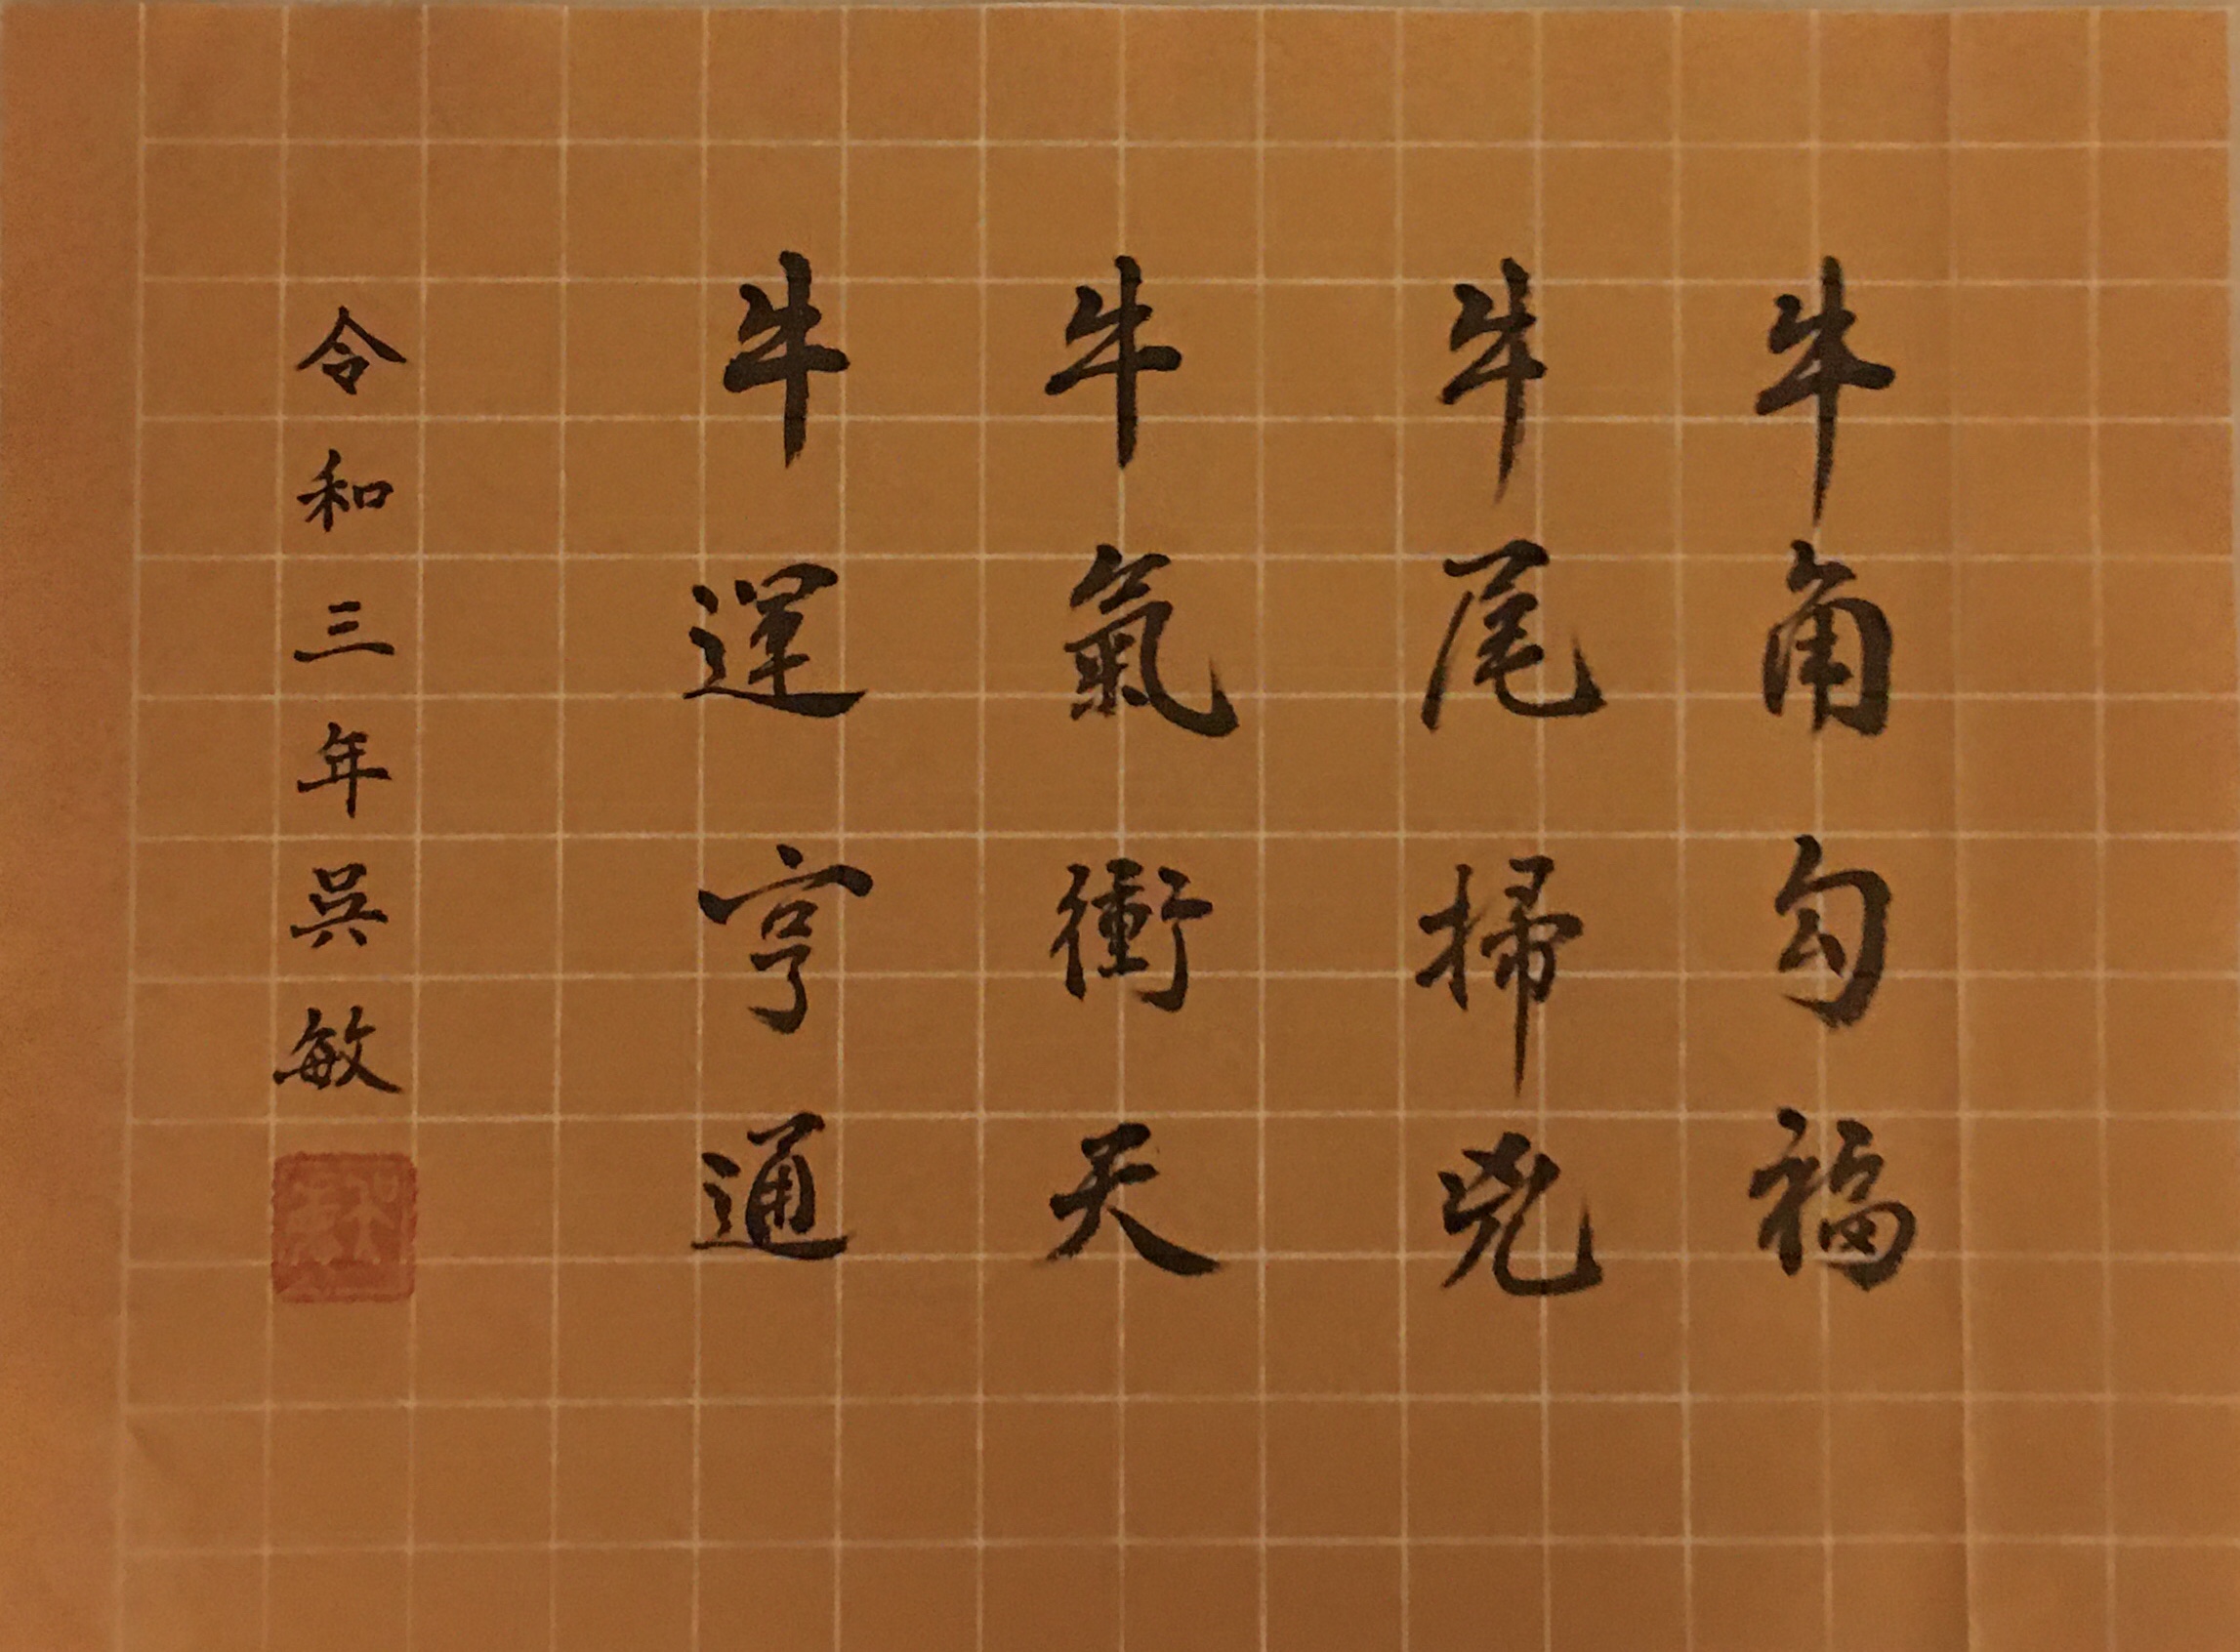 牛角勾福
牛尾掃兇
牛氣衝天
牛運亨通
令和三年吳敏